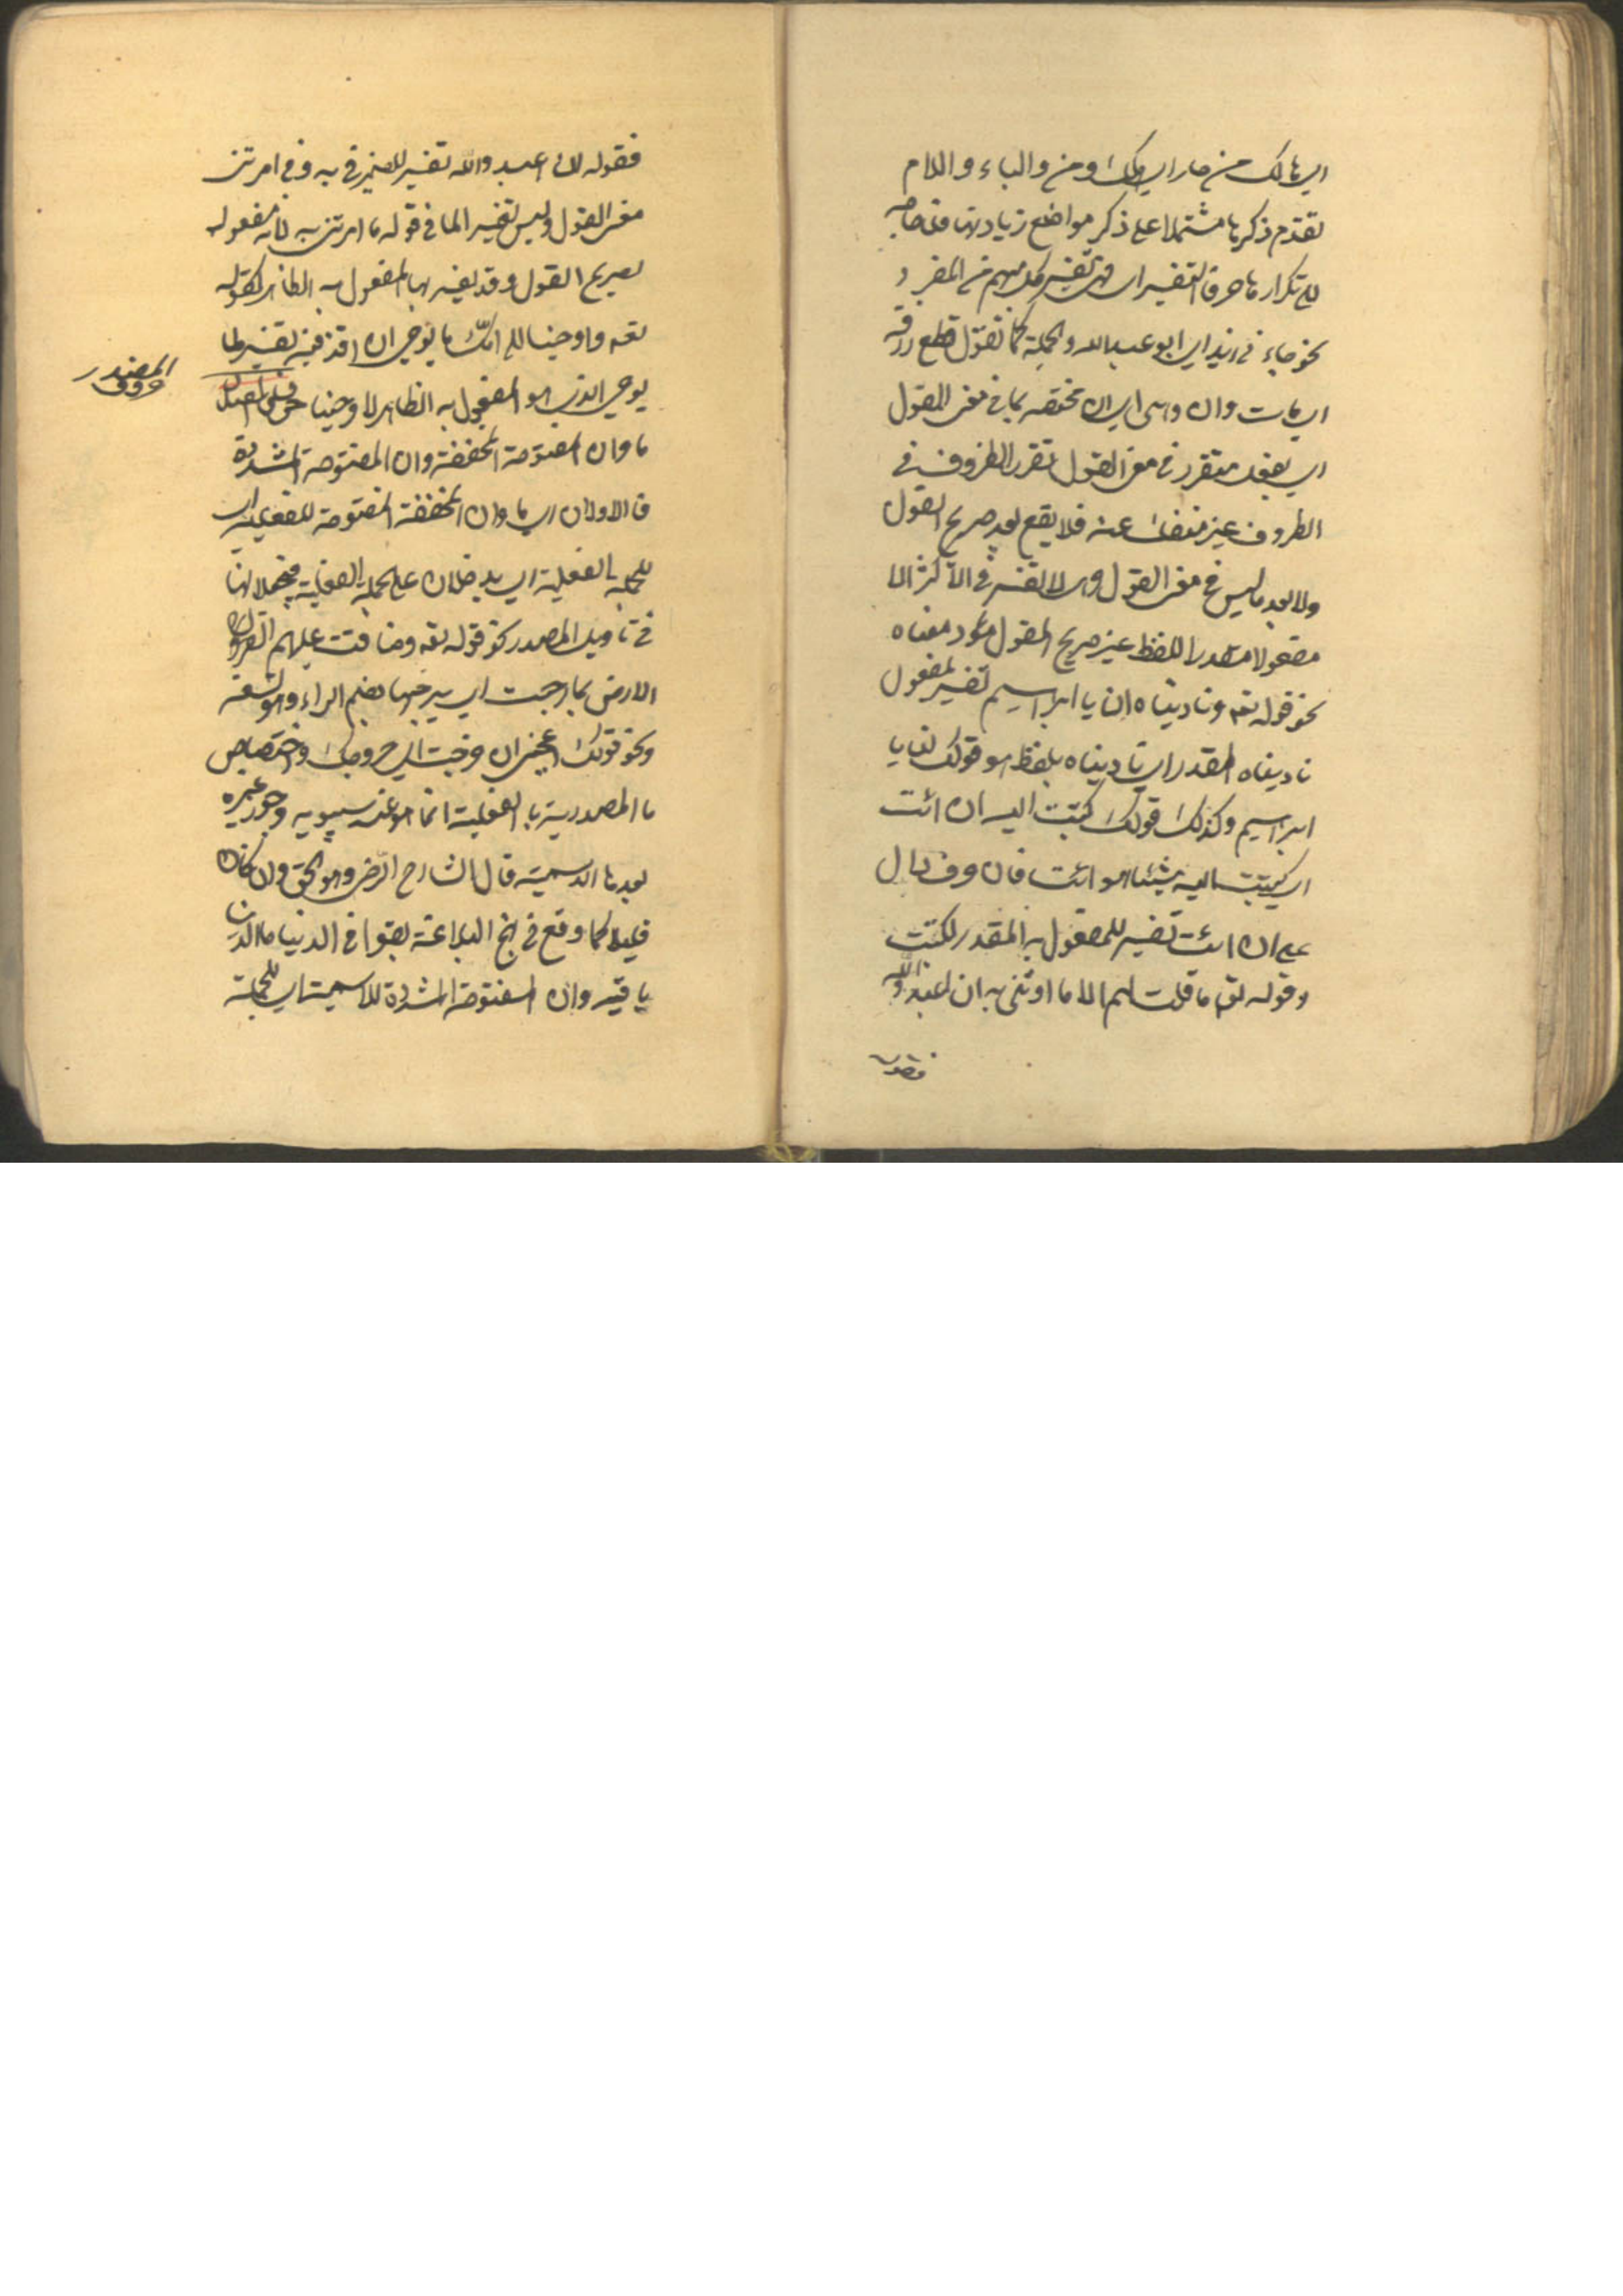 اي هالك من مار اي ومن والباء واللام
تقدم ذكرها مشتملا على ذكر مواضع زيادتها فلا حاجة
الى تكرارها حرفا التفسير اي فهي تفسير كل مبهم من المفرد
نحو جاءني زيد اي ابو عبد الله والجملة كما تقول قطع رزقه
اي مات وان وهي اي ان مختصة بما في معنى القول
اي بفعل متقرر في معنى القول تقرر الظروف في
الظروف غير منفك عنه فلا يقع بعد صريح القول
ولا بعد ما ليس في معنى القول وهي لا تفسر في الاكثر الا
مفعولا مقدرا للفظ غير صريح القول مؤد معناه
نحو قوله تعه وناديناه ان يا ابراهيم تفسير لمفعول
ناديناه المقدر اي ناديناه بلفظ هو قولنا يا
ابراهيم وكذلك قولك كتبت اليه ان ائت
اي كتبت اليه شيئا هو ائت فان حرف دال
على ان ائت تفسير للمفعول به المقدر لكتبت
وقوله تعه ما قلت لهم الا ما امرتني به ان اعبدوا الله
فقوله
فقوله ان اعبدوا الله تفسير للضمير في به وفي امرتني
معنى القول وليس تفسير لما في قوله ما امرتني به لانه مفعول
لصريح القول وقد يفسر بها المفعول به الظاهر كقوله
تعه واوحينا الى امك ما يوحى ان اقذفيه تفسير لما
يوحى الذي هو المفعول به الظاهر لاوحينا
حروف المصدر
ما وان المفتوحة المخففة وان المفتوحة المشددة
فالاولان اي ما وان المخففة المفتوحة للفعلية اي
للجملة الفعلية اي يدخلان على الجملة الفعلية فيجعلانها
في تاويل المصدر كنحو قوله تعه وضاقت عليهم
الارض بما رحبت اي برحبها بضم الراء وهو السعة
ونحو قولك اعجبني ان خرجت اي خروجك واختصاص
ما المصدرية بالفعلية انما هو عند سيبويه وجوز غيره
بعدها الاسمية قال الشارح الرضي وهو الحق وان كان
قليلا كما وقع في نهج البلاغة بقوا في الدنيا ما الدنيا
باقية وان المفتوحة المشددة للاسمية اي للجملة